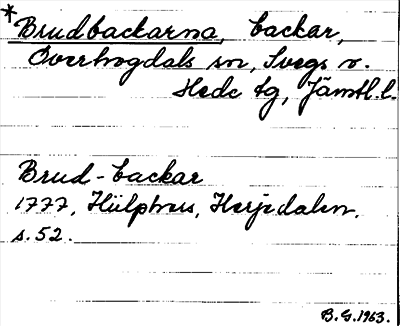 *Brudbackarna, backar,
Överhogdals sn, Svegs o.
Hede tg, Jämtl.l.
Brud-backar
1777, Hülphers, Herjedalen.
s.52.
B.G.1963.